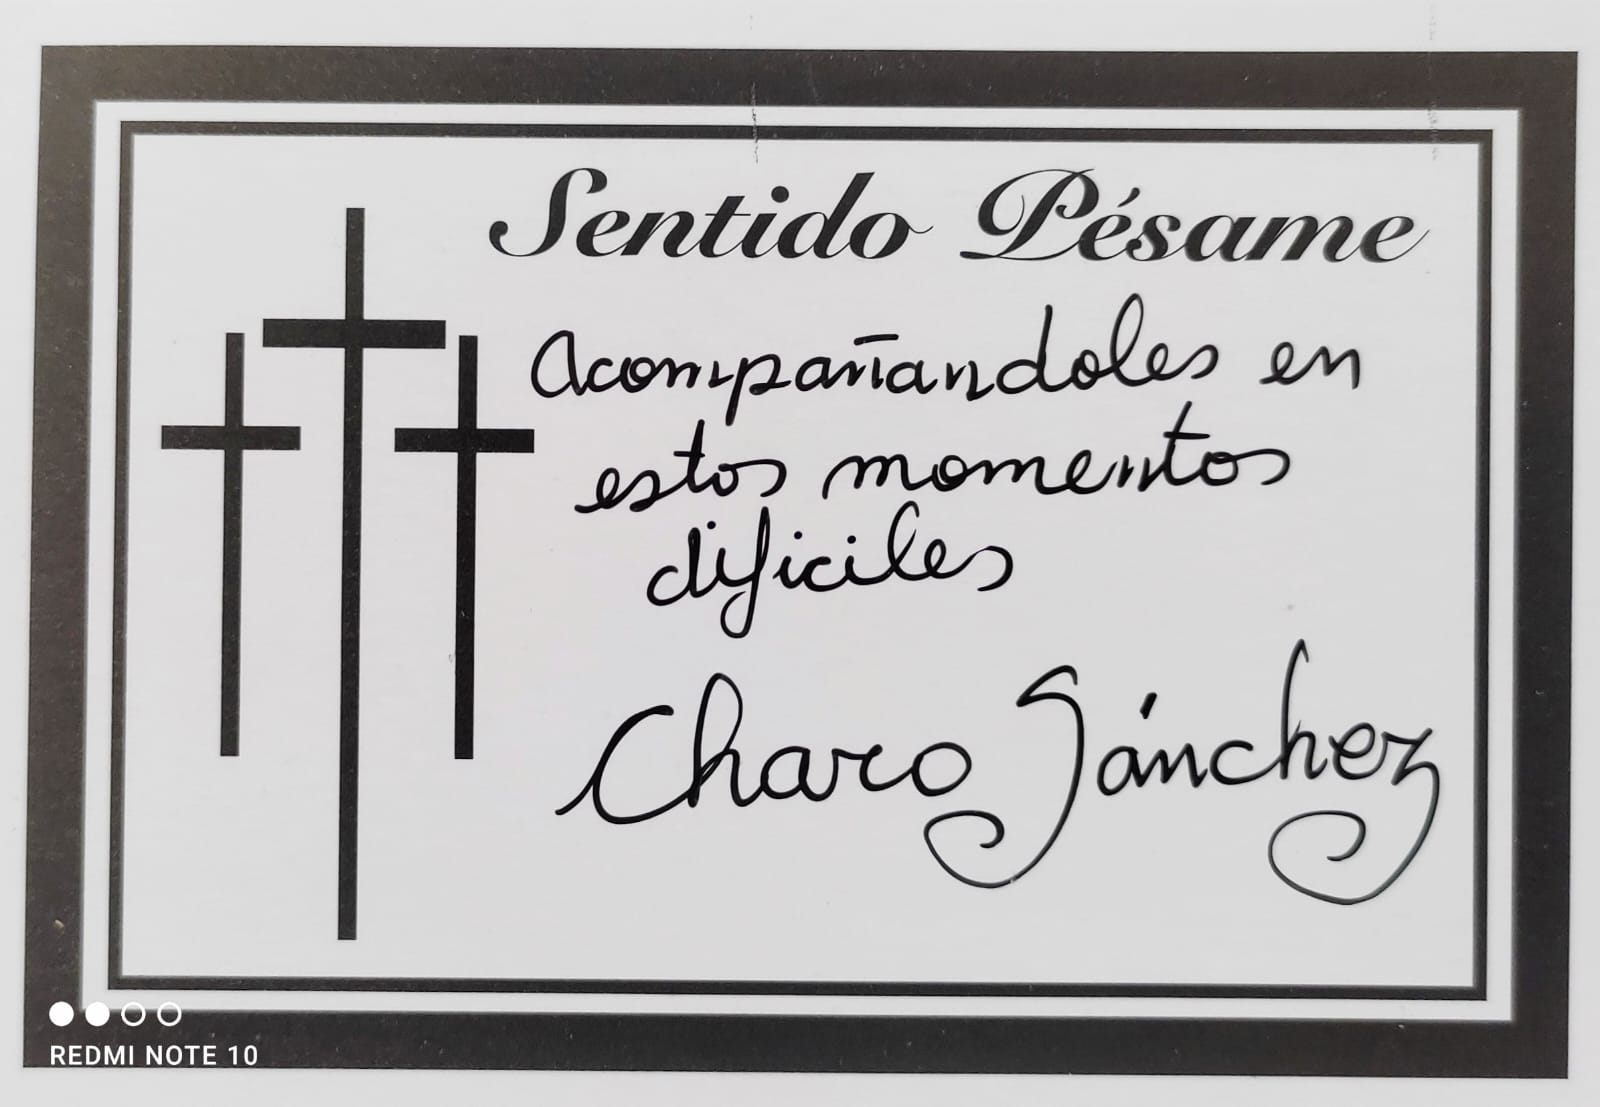 Sentido Pésame
Acompañandoles en
estos momentos
dificiles
Charo Sánchez
REDMI NOTE 10